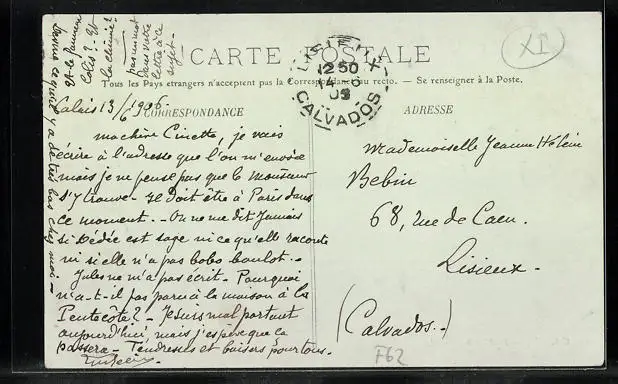 CARTE POSTALE
Tous les Pays étrangers n'acceptent pas la Correspondance au recto. — Se renseigner à la Poste.
CORRESPONDANCE
ADRESSE
XI
LISIEUX
12 50
14 6
CALVADOS
Calais 13/6 1906
ma chère Cinette, je vais
écrire à l'adresse que l'on m'envoie
mais je ne pense pas que le monsieur
s'y trouve - Il doit être à Paris dans
ce moment. - On ne me dit jamais
si Dédée est sage ni ce qu'elle raconte
ni si elle n'a pas bobo boulot. -
Jules ne m'a pas écrit - Pourquoi
n'a-t-il pas paru à la maison à la
Pentecôte? - Je suis mal portant
aujourd'hui, mais j'espère que ça
passera - Tendresses et baisers pour tous.
Et le
Colis? - Et
la
pas un mot
dans votre
lettre à ce
sujet -
ce qu'il y a de très bas chez moi -
Mademoiselle Jeanne Hélène
Bebin
68, Rue de Caen.
Lisieux. -
(Calvados. -)
F62